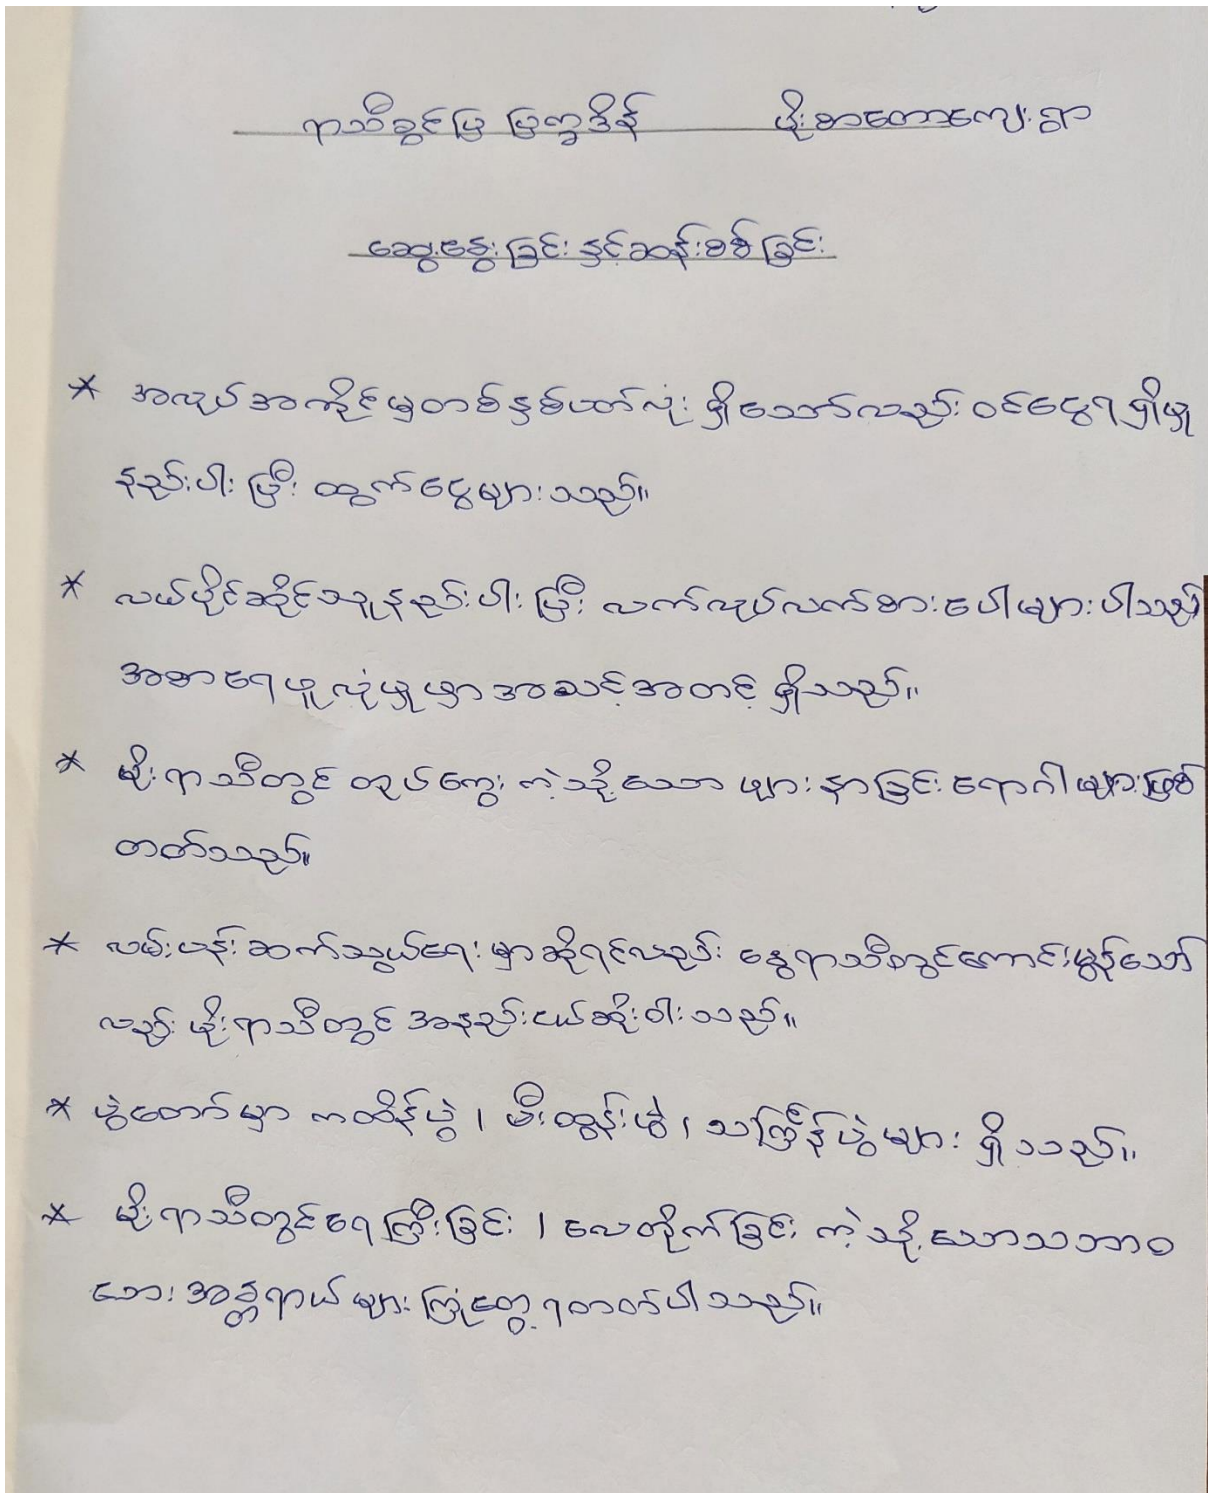 ရာသီခွင်ပြ ပြက္ခဒိန် ဖိုးစာတောကျေးရွာ
ဆွေးနွေးခြင်းနှင့်ဆန်းစစ်ခြင်း
* အလုပ်အကိုင်မှတစ်နှစ်ပတ်လုံး ရှိသော်လည်း ဝင်ငွေရရှိမှု
နည်းပါးပြီး ထွက်ငွေများသည်။
* လယ်ပိုင်ဆိုင်သူနည်းပါးပြီး လက်လုပ်လက်စားပေါများပါသည်
အစာရေယူလုံမှုမှာ အသင့်အတင့် ရှိသည်။
* မိုးရာသီတွင် တုပ်ကွေး ကဲ့သို့သော ဖျားနာခြင်းရောဂါများဖြစ်
တတ်သည်။
* လမ်းပန်းဆက်သွယ်ရေးမှာဆိုရင်လည်း နွေရာသီတွင်ကောင်းမွန်သော်
လည်း မိုးရာသီတွင် အနည်းငယ်ဆိုးဝါးသည်။
* ပွဲတော်မှာ ကထိန်ပွဲ ၊ မီးထွန်းပွဲ ၊ သင်္ကြန်ပွဲများ ရှိသည်။
* မိုးရာသီတွင်ရေကြီးခြင်း ၊ လေတိုက်ခြင်း ကဲ့သို့သောသဘာဝ
ဘေးအန္တရာယ်များ ကြုံတွေ့ရတတ်ပါသည်။